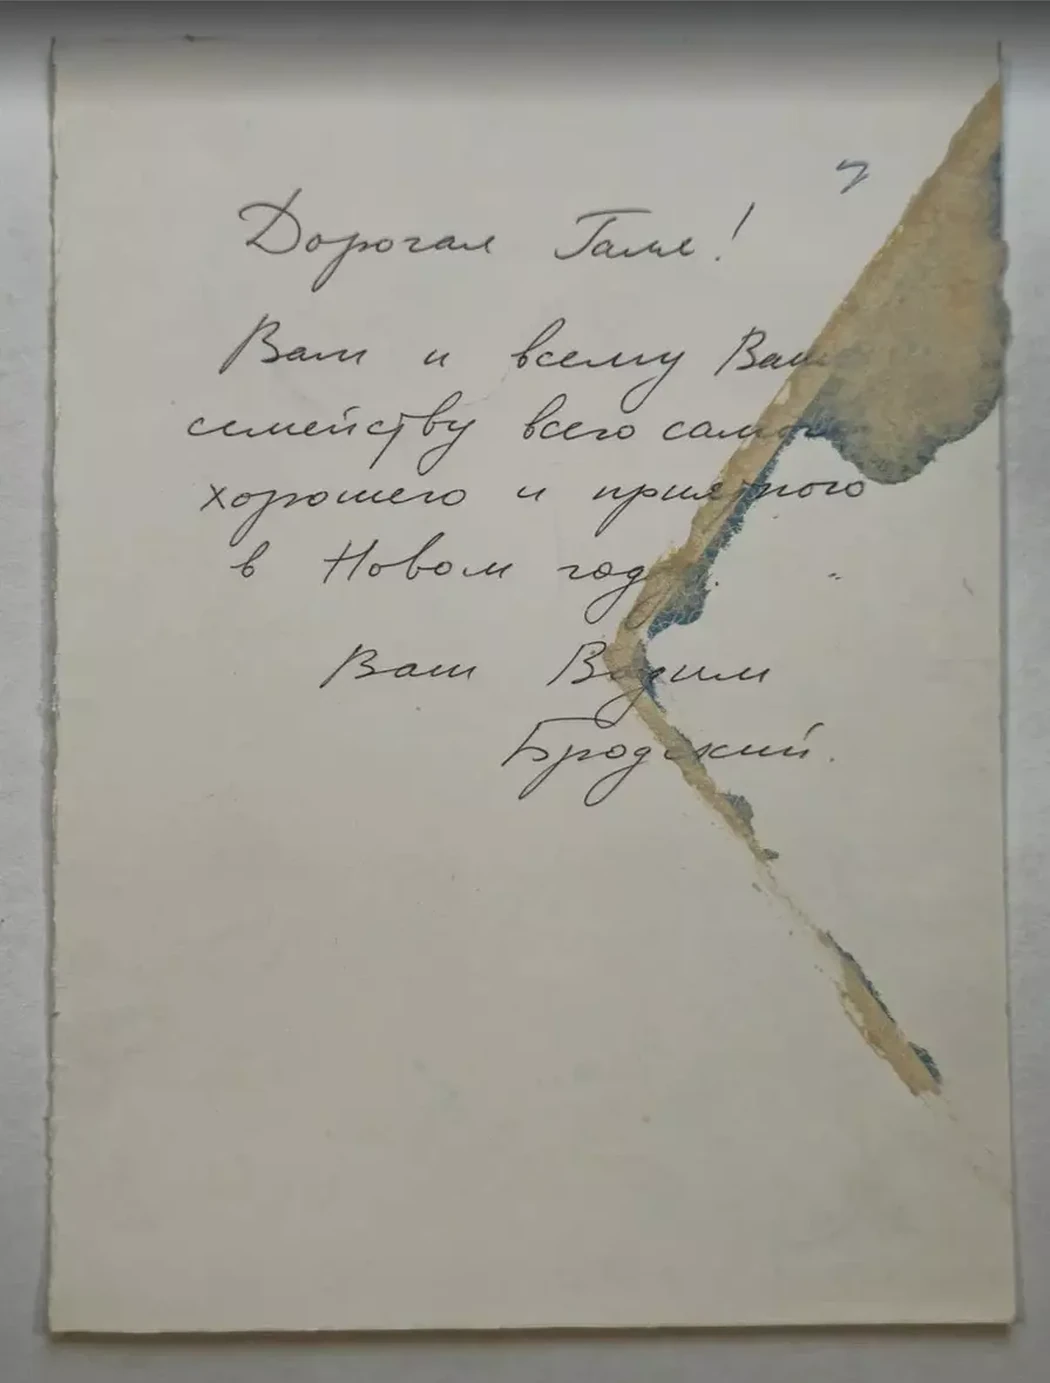 Дорогая Галя!
Вам и всему Ваш
семейству всего само
хорошего и приятного
в Новом году.
Ваш Вадим
Бродский.